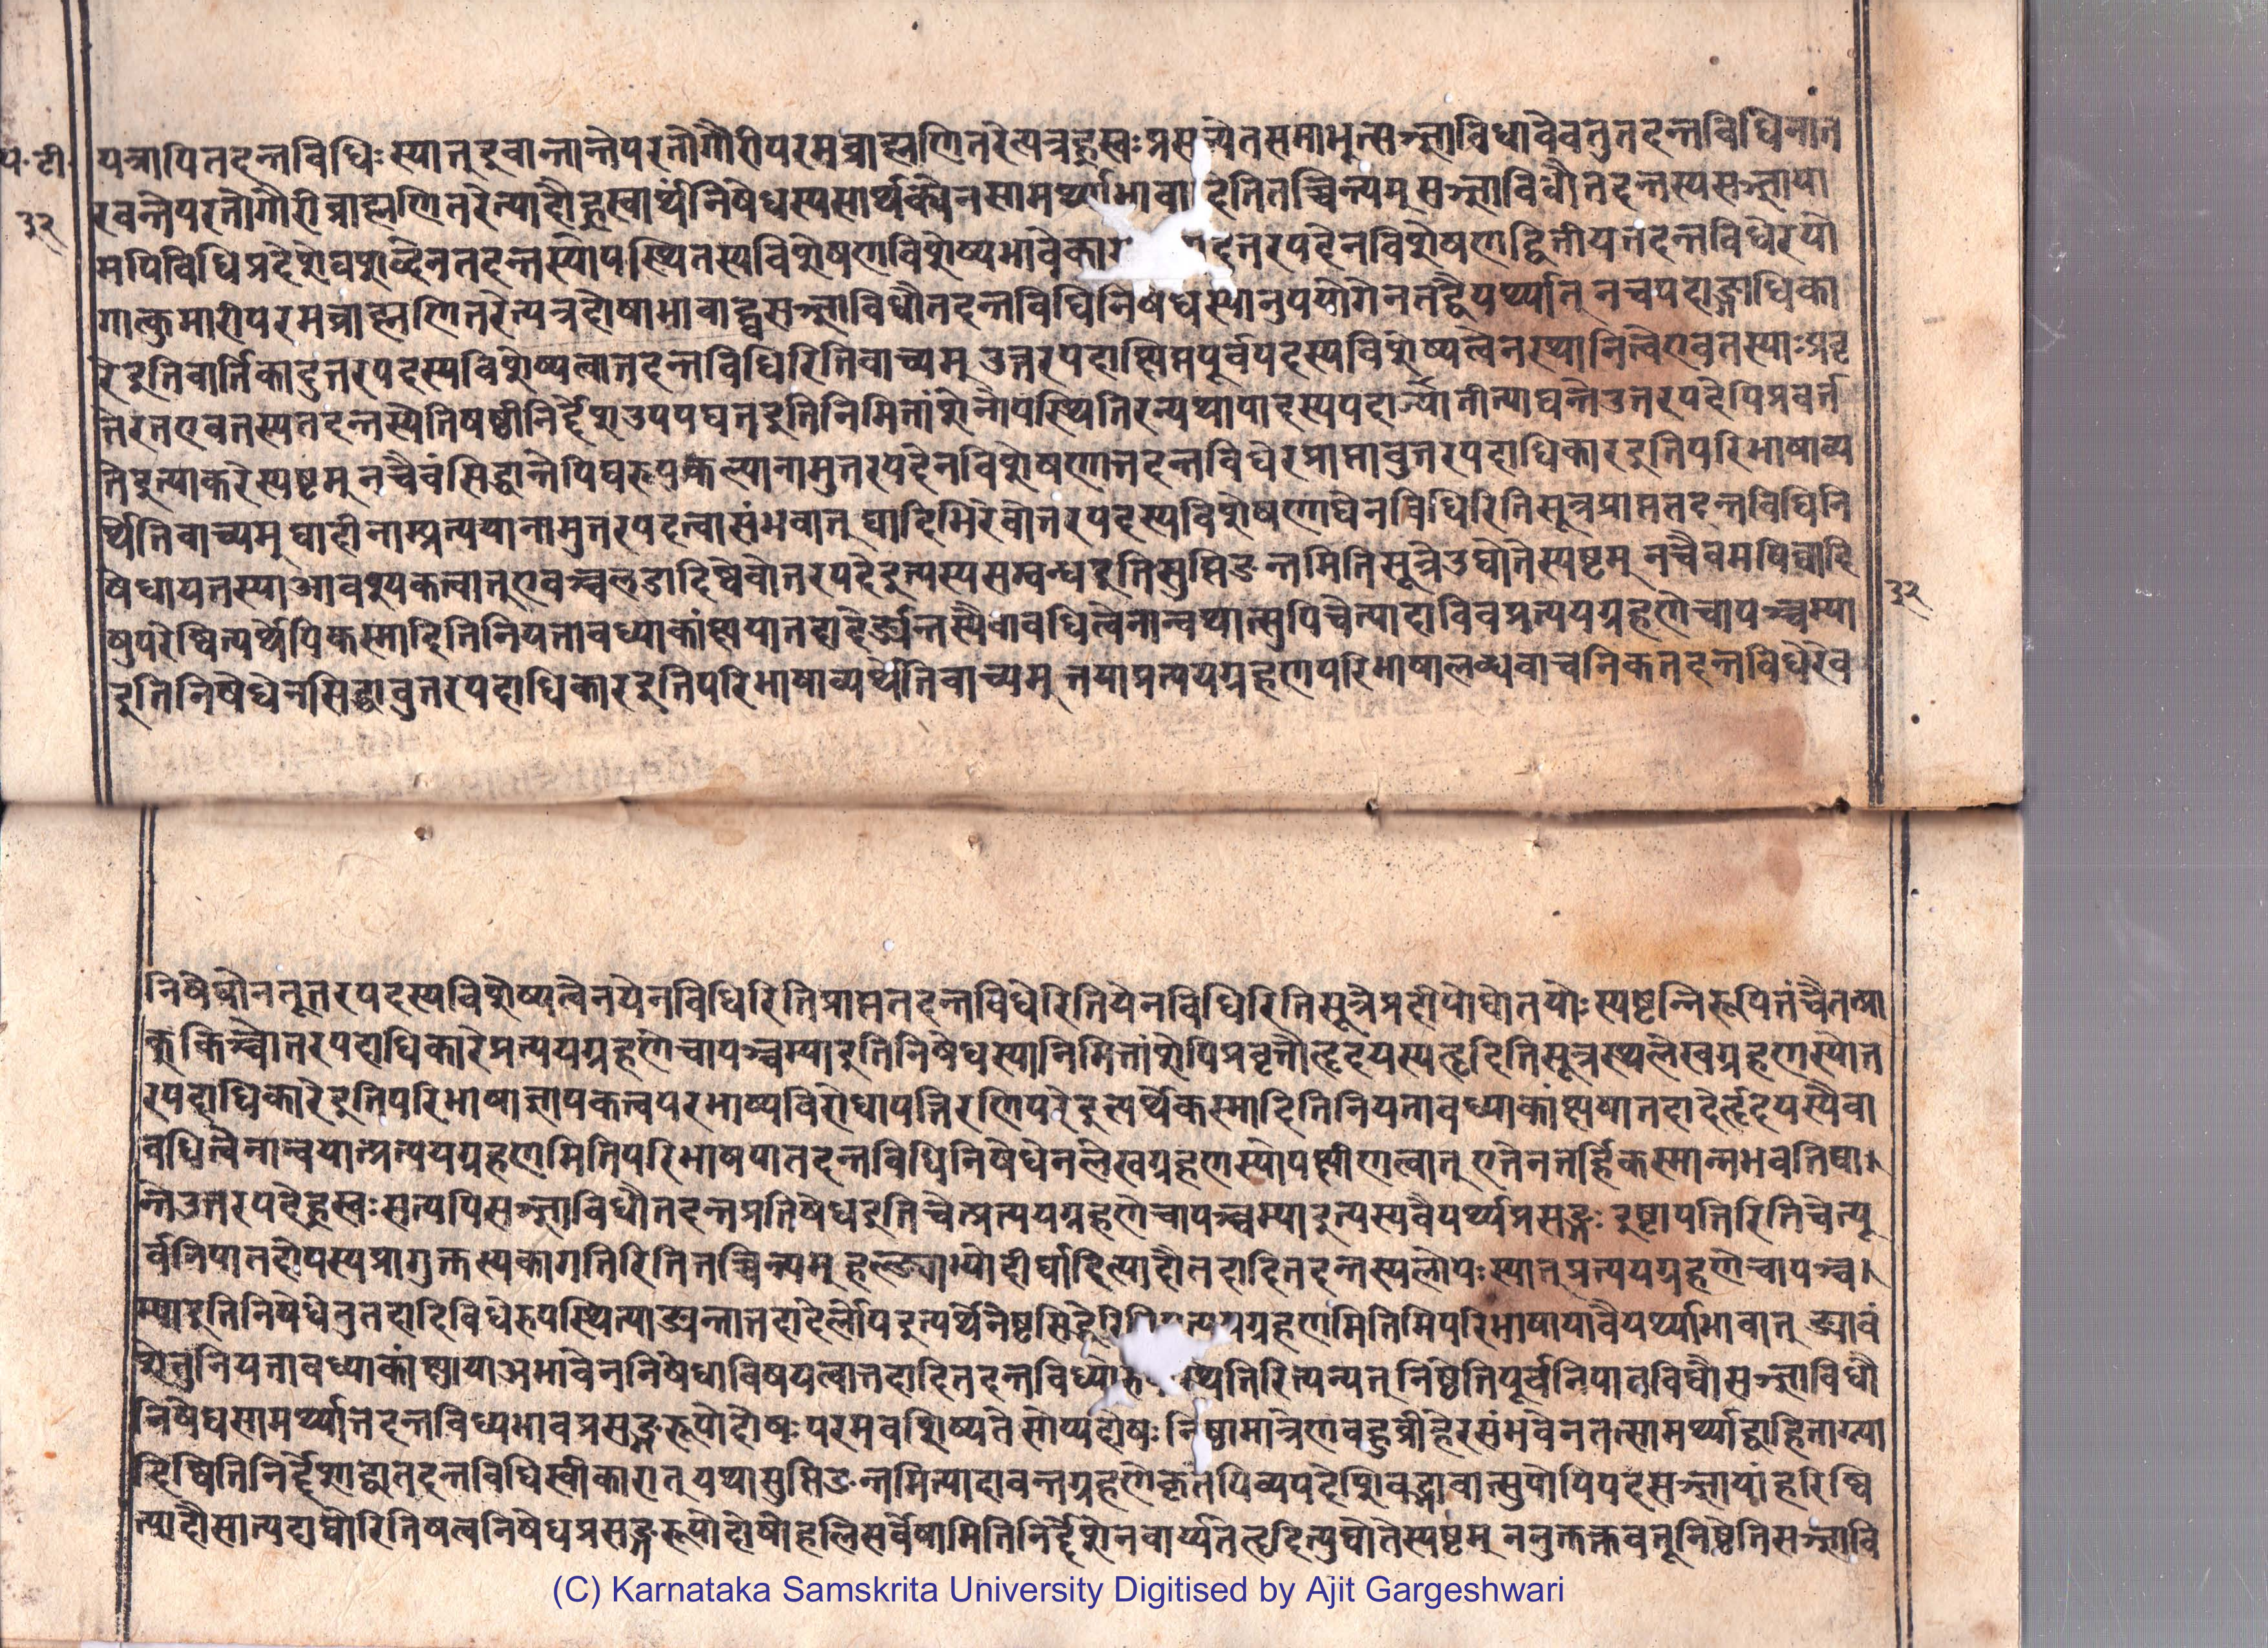 प॰ टी॰
३२
यत्रापि तदन्तविधिः स्यात् इवान्तान्ते परतो गौरीपरमब्राह्मणितरेत्यत्र ह्रस्वः प्रस ज्येत समाभूत्सञ्ज्ञाविधावेव तु तदन्तविधिर्नोत्त
रवन्ते परतो गौरीब्राह्मणितरेत्यादौ ह्रस्वार्थं निषेधस्य सार्थक्येन सामर्थ्याभावा दिति तच्चिन्त्यम् सञ्ज्ञाविधौ तदन्तस्य सञ्ज्ञाया
मपि विधिप्रदेशे घशब्देन तदन्तस्योपस्थितस्य विशेषणविशेष्यभावे का त्तरपदेन विशेषणाद्द्वितीयतदन्तविधेरयो
गात्कुमारीपरमब्राह्मणितरेत्यत्र दोषाभावाद्घसञ्ज्ञाविधौ तदन्तविधिनिषेधस्यानुपयोगेन तद्वैयर्थ्यात् न च पदाङ्गाधिका
रे इति वार्तिकादुत्तरपदस्य विशेष्यत्वात्तदन्तविधिरिति वाच्यम् उत्तरपदाक्षिप्तपूर्वपदस्य विशेष्यत्वेन स्थानित्वे एव तस्याः प्रवृ
त्तिरत एव तस्य तदन्तस्येति षष्ठीनिर्देश उपपद्यत इति निमित्तांशे नोपस्थितिरन्यथा पादस्य पदाज्यातीत्याद्यन्ते उत्तरपदेपि प्रवर्त
त इत्याकरे स्पष्टम् न चैवं सिद्धान्तेपि घरूपकल्पानामुत्तरपदेन विशेषणात्तदन्तविधेरप्राप्तावुत्तरपदाधिकार इति परिभाषा व्य
र्थेति वाच्यम् घादीनाम्प्रत्ययानामुत्तरपदत्वासंभवात् घादिभिरेवोत्तरपदस्य विशेषणाद्येन विधिरिति सूत्रप्राप्ततदन्तविधिनि
षेधाय तस्या आवश्यकत्वात् एवञ्च लडादिष्वेवोत्तरपदे इत्यस्य सम्बन्ध इति सुप्तिङन्तमिति सूत्रे उद्घोते स्पष्टम् न चैवमपि घादि
षु परेष्वित्यर्थेपि कस्मादिति नियतावध्याकांक्षाया तदादेर्ङ्यन्तस्यैवावधित्वेनान्वयात्सुपि चेत्यादाविव प्रत्ययग्रहणे चापञ्चम्या
इति निषेधेन सिद्धावुत्तरपदाधिकार इति परिभाषा व्यर्थेति वाच्यम् तया प्रत्ययग्रहणपरिभाषालब्धवाचनिकतदन्तविधेरेव
३२
निषेधो न तूत्तरपदस्य विशेष्यत्वे न येन विधिरिति प्राप्ततदन्तविधेरिति येन विधिरिति सूत्रे प्रदीपोद्घोतयोः स्पष्टन्निरूपितं चैतत्प्रा
क् किञ्चोत्तरपदाधिकारे प्रत्ययग्रहणे चापञ्चम्या इति निषेधस्यानिमित्तांशेपि प्रवृत्तौ हृदयस्य हृदिति सूत्रस्थलेखग्रहणस्योत्त
रपदाधिकारे इति परिभाषाज्ञापकत्वपरभाष्यविरोधापत्तिरणि परे इत्यर्थे कस्मादिति नियतावध्याकांक्षया तदादेर्हृदयस्यैवा
वधित्वेनान्वयात्प्रत्ययग्रहणमिति परिभाषया तदन्तविधिनिषेधेन लेखग्रहणस्योपक्षीणत्वात् एतेन तर्हि कस्मान्न भवति घा।
न्ते उत्तरपदे ह्रस्वः सत्यपि सञ्ज्ञाविधौ तदन्तप्रतिषेध इति चेत्प्रत्ययग्रहणे चापञ्चम्या इत्यस्य वैयर्थ्यप्रसङ्गः इष्टापत्तिरिति चेत्पू
र्वनिपातदोषस्य प्रागुक्तस्य का गतिरिति तच्चिन्त्यम् हल्ङ्याभ्यो दीर्घादित्यादौ तदादितदन्तस्य लोपः स्यात् प्रत्ययग्रहणे चापञ्च।
म्या इति निषेधे तु तदादिविधेरुपस्थित्या ङ्यन्तात्तदादेर्लोप इत्यर्थेनेष्टसिद्धेरिति प्रत्ययग्रहणमिति परिभाषाया वैयर्थ्याभावात् ङ्यावं
शे तु नियतावध्याकांक्षाया अभावेन निषेधाविषयत्वात्तदादितदन्तविध्यो स्थितिरित्यन्यत् निष्ठेति पूर्वनिपातविधौ सञ्ज्ञाविधौ
निषेधसामर्थ्यात्तदन्तविध्यभावप्रसङ्गरूपो दोषः परमवशिष्यते सोप्यदोषः निष्ठामात्रेण बहुव्रीहेरसंभवेन तत्सामर्थ्याद्वाहिताग्न्या
दिष्विति निर्देशाद्वा तदन्तविधिस्वीकारात् यथा सुप्तिङन्तमित्यादावन्तग्रहणे कृतेपि व्यपदेशिवद्भावात्सुपोपि पदसञ्ज्ञायां हरिष्वि
त्यादौ सात्पदाद्योरिति षत्वनिषेधप्रसङ्गरूपो दोषो हलि सर्वेषामिति निर्देशेन वार्य्यते तद्वदित्युद्घोते स्पष्टम् ननु क्तक्तवतू निष्ठेति सञ्ज्ञावि
(C) Karnataka Samskrita University Digitised by Ajit Gargeshwari